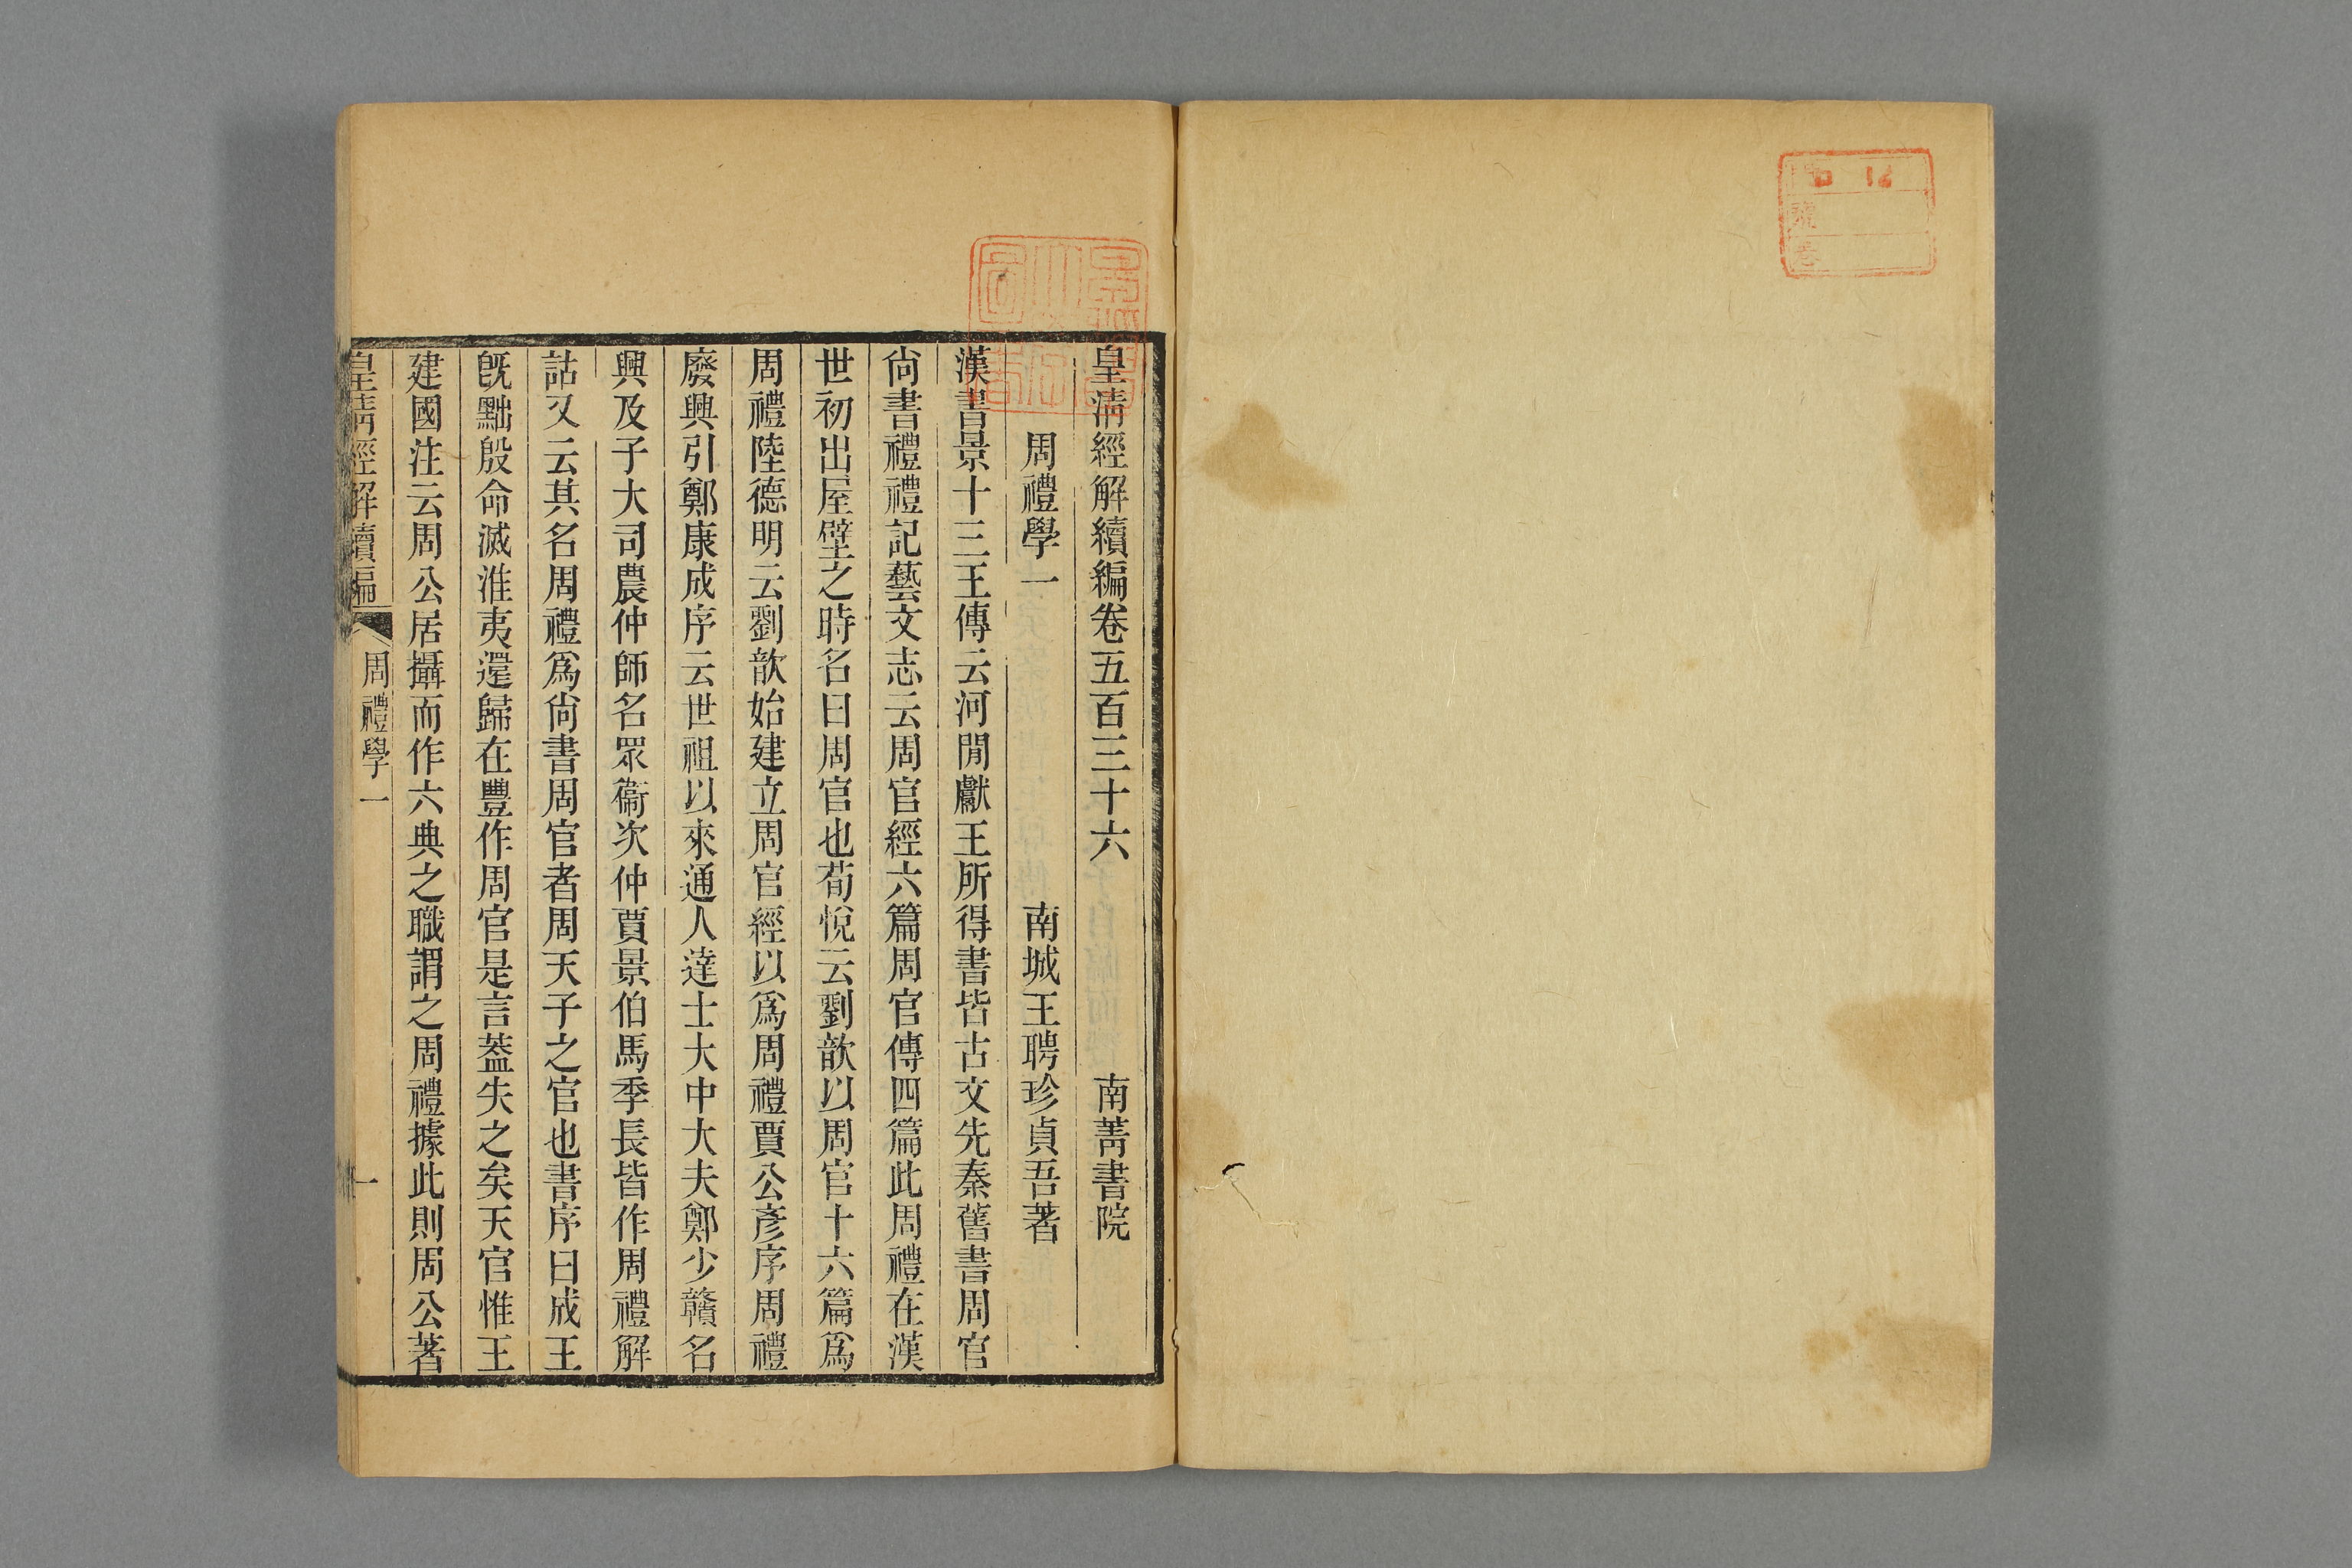 皇清經解續編卷五百三十六　南菁書院
周禮學一　南城王聘珍貞吾著
漢書景十三王傳云河閒獻王所得書皆古文先秦舊書周官
尙書禮禮記藝文志云周官經六篇周官傳四篇此周禮在漢
世初出屋壁之時名曰周官也荀悅云劉歆以周官十六篇爲
周禮陸德明云劉歆始建立周官經以爲周禮賈公彥序周禮
廢興引鄭康成序云世祖以來通人達士大中大夫鄭少贛名
興及子大司農仲師名眾衞次仲賈景伯馬季長皆作周禮解
詁又云其名周禮爲尙書周官者周天子之官也書序曰成王
旣黜殷命滅淮夷還歸在豐作周官是言葢失之矣天官惟王
建國注云周公居攝而作六典之職謂之周禮據此則周公著
皇淸經解續編　周禮學一　一